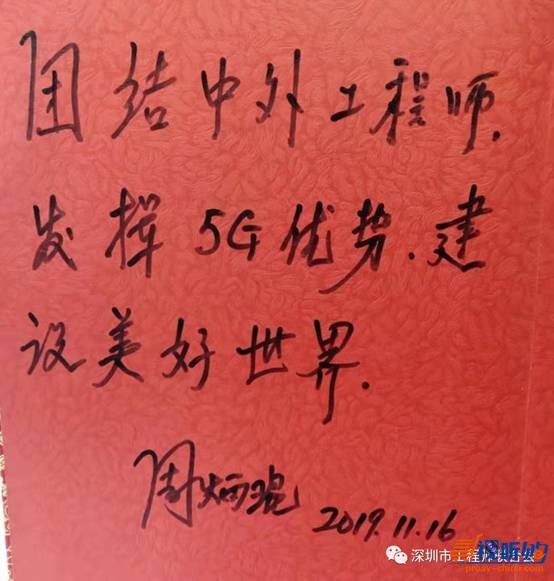 团结中外工程师.
发挥5G优势.建
设美好世界.
周炳琨 2019.11.16
深圳市工程师联合会
视听的
proav-china.com